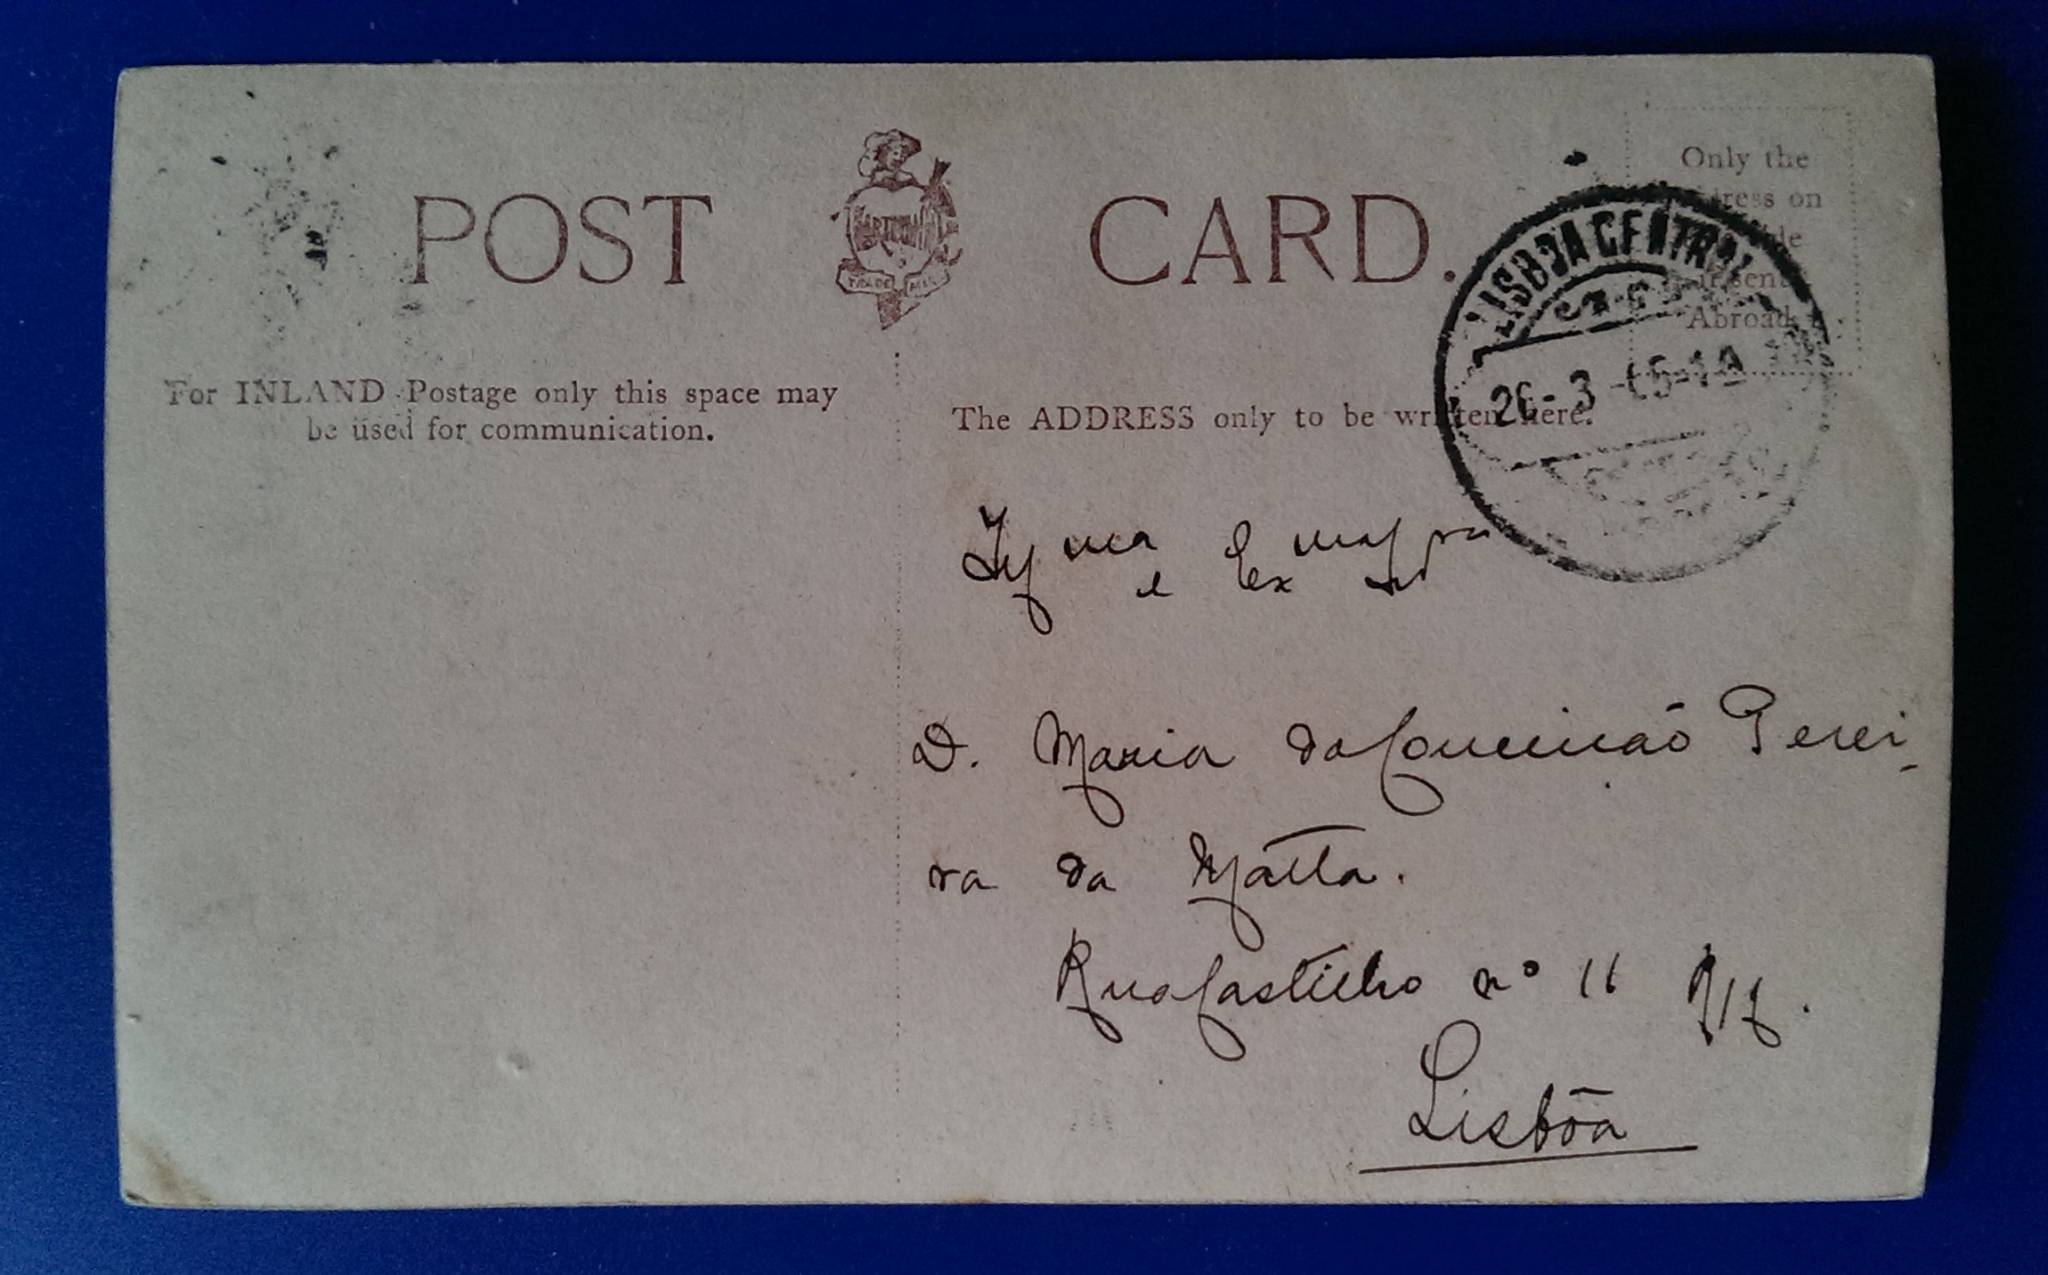 POST CARD.
TRADE MARK
Only the
on
Abroad
LISBOA CENTRAL
26-3
For INLAND Postage only this space may
be used for communication.
The ADDRESS only to be written here.
e Ex
D. Maria da Conceição Perei-
ra da Matta.
Rua Castilho nº 11
Lisbôa